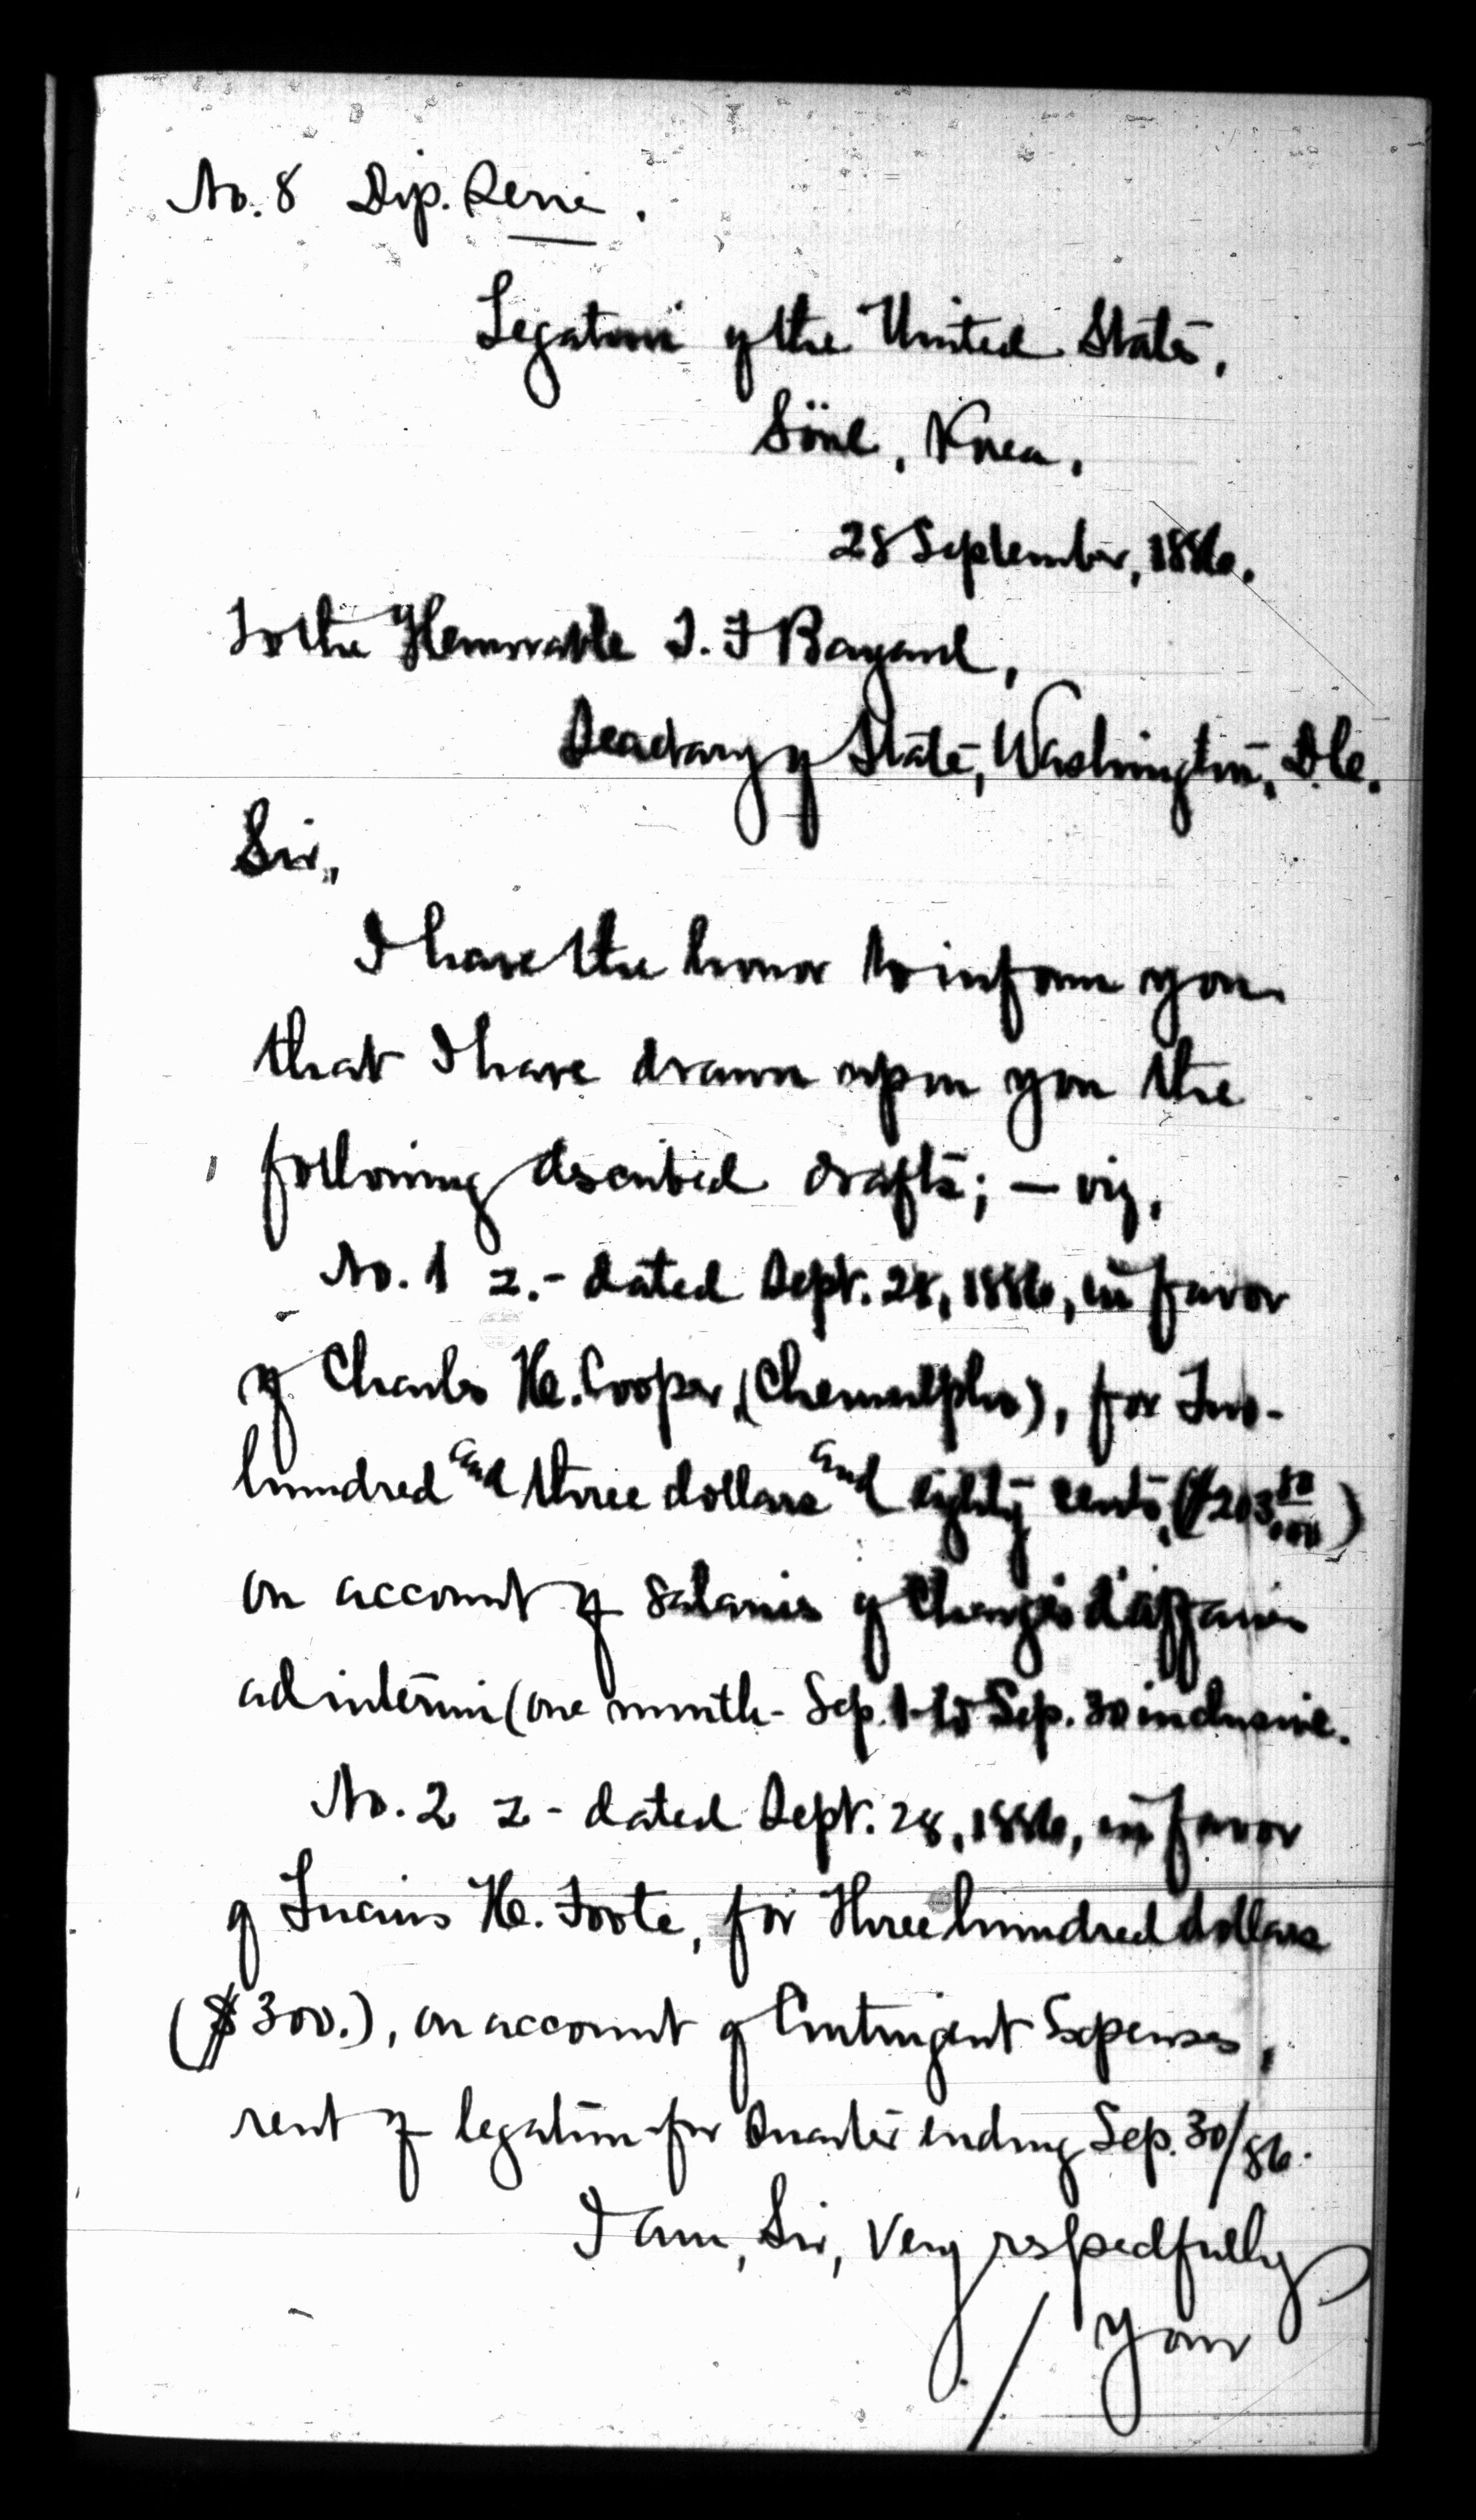 No. 8 Dip. Serie.
Legation of the United States,
Söul, Korea,
28 September, 1886.
To the Honorable T. F Bayard,
Secretary of State, Washington, D.C.
Sir,
I have the honor to inform you
that I have drawn upon you the
following described drafts; — viz,
No. 1 z. - dated Sept. 28, 1886, in favor
of Charles H. Cooper, (Chemulpho), for Two-
hundred and three dollars and eighty cents, ($203 80/100)
on account of Salaries of Chargés d'affaires
ad interim (one month - Sep. 1 to Sep. 30 inclusive.
No. 2 z - dated Sept. 28, 1886, in favor
of Lucius H. Foote, for Three hundred dollars
($300.), on account of Contingent Expenses,
rent of legation for Quarter ending Sep. 30/86.
I am, Sir, Very respectfully
Your